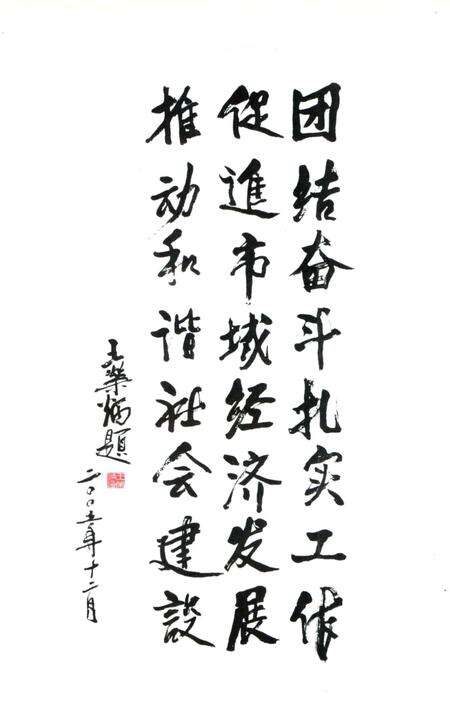 团结奋斗扎实工作
促進市域经济发展
推动和谐社会建設
王樂炳題
二〇〇五年十二月